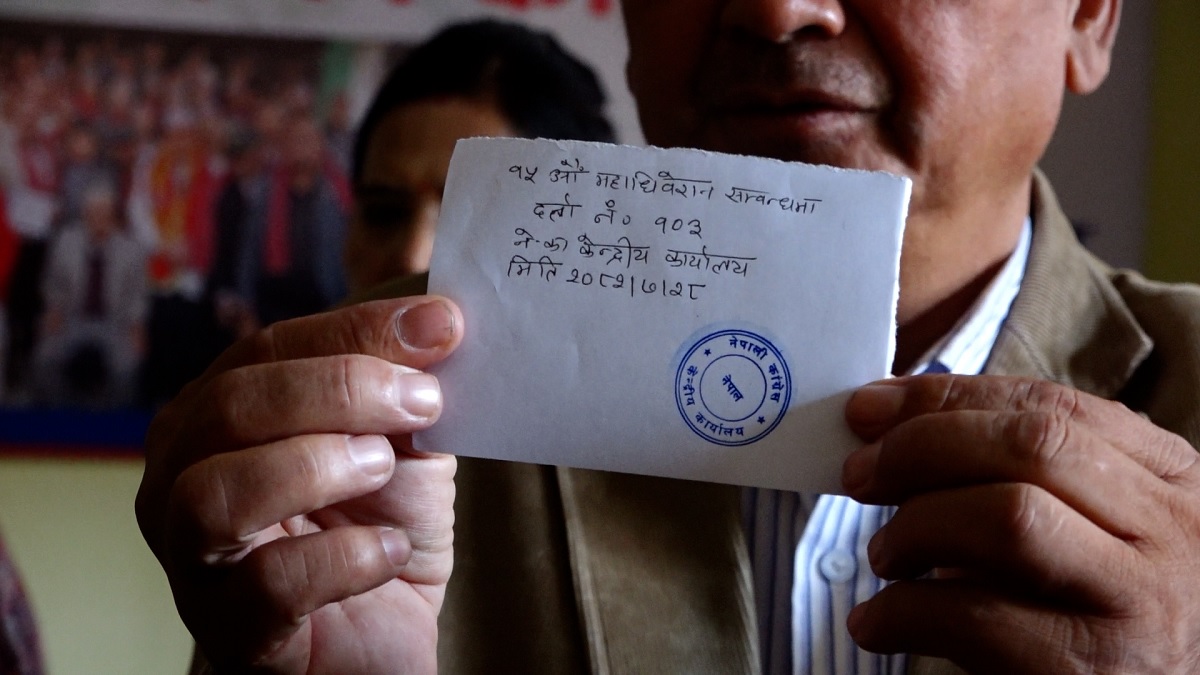 १५ औं महाधिवेशन सम्वन्धमा
दर्ता नं० १०३
ने.का केन्द्रीय कार्यालय
मिति २०८२|७|२८
नेपाली कांग्रेस
नेपाल
केन्द्रीय कार्यालय